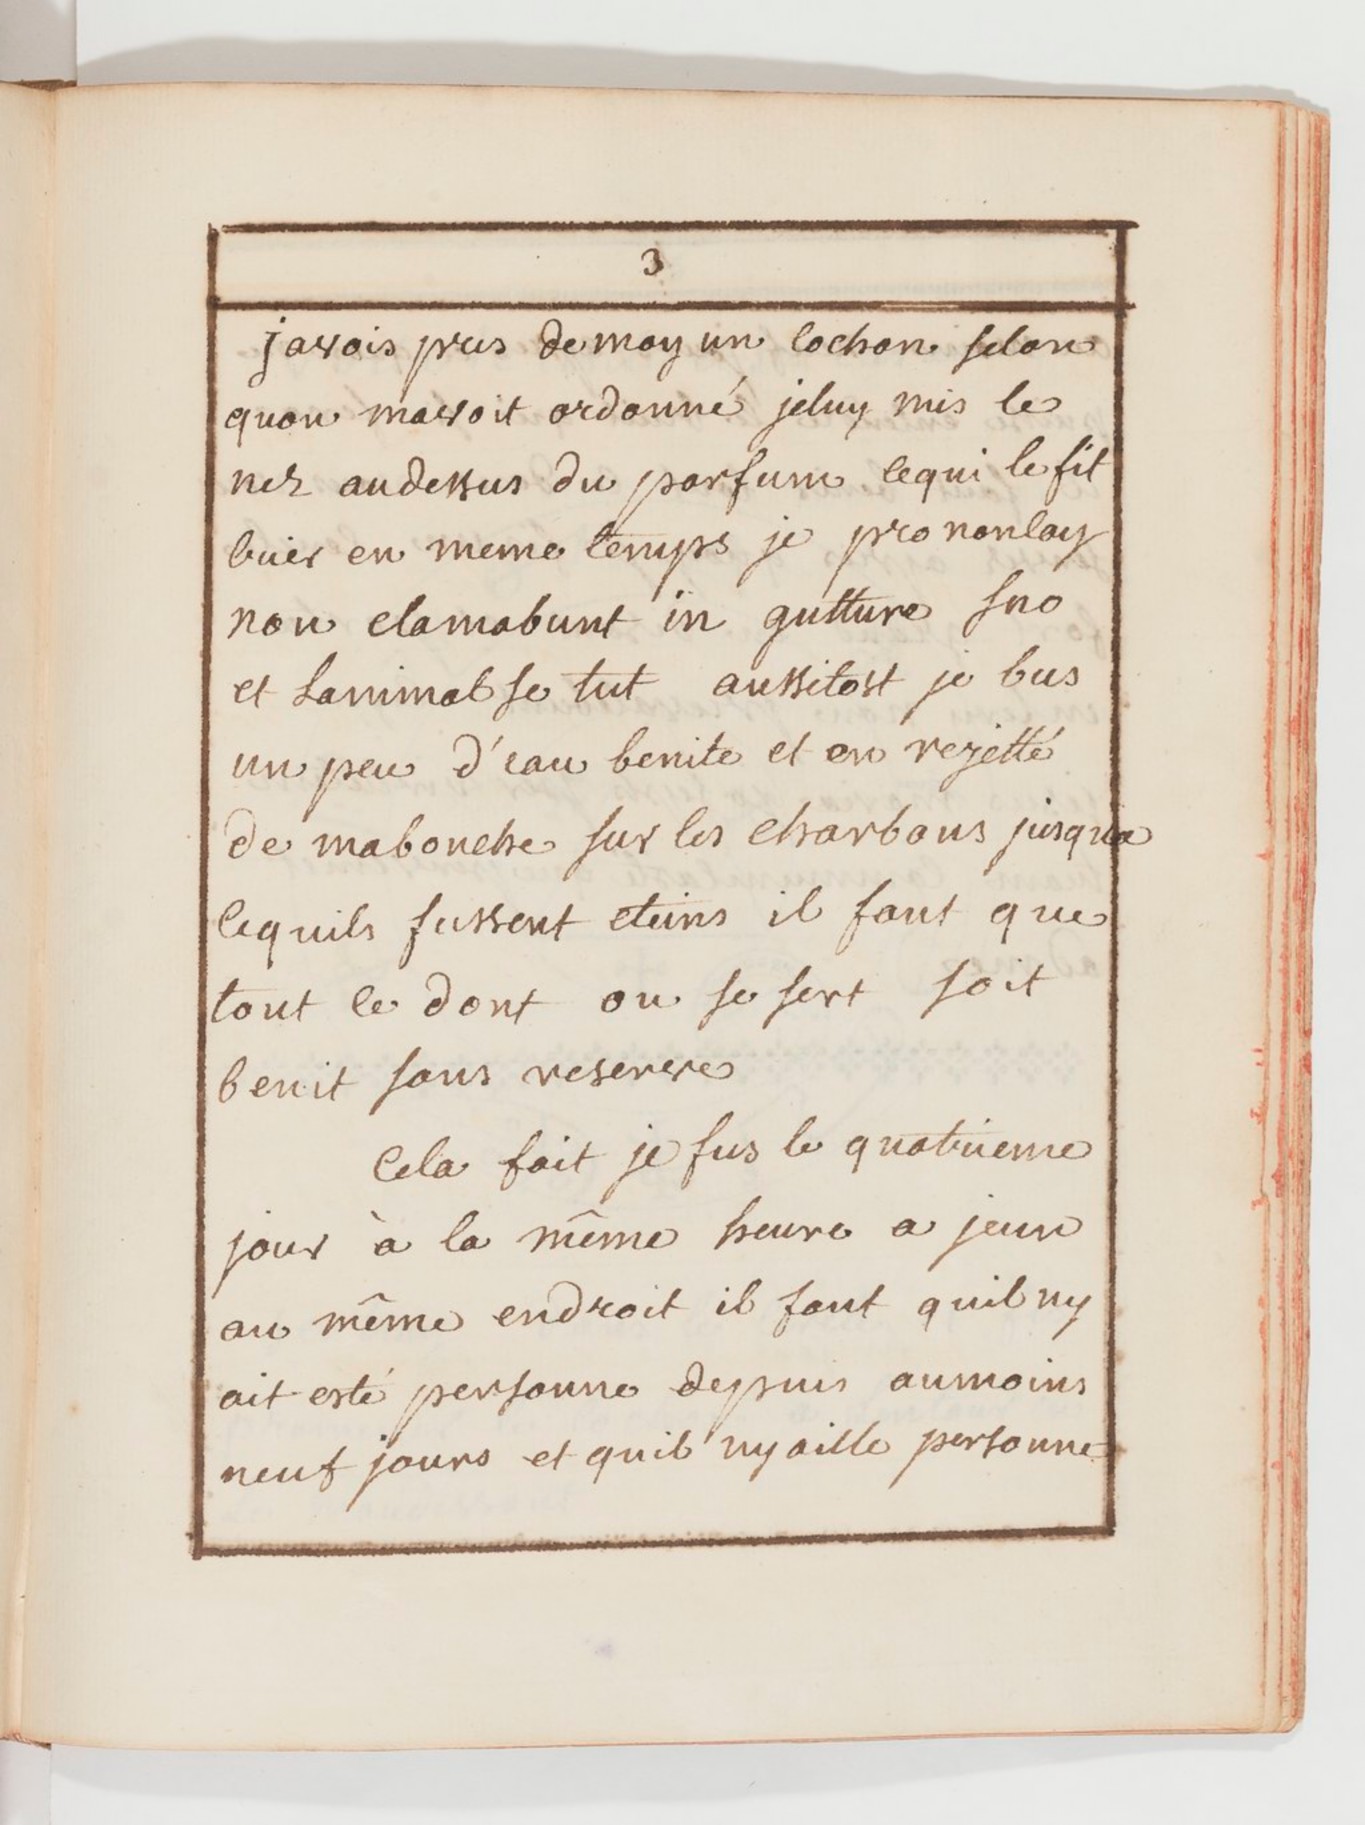 3
javois pres de moy un cochon selon
quon mavoit ordonné jeluy mis le
nez audessus du parfum cequi le fit
crier en meme temps je prononcay
non clamabunt in gutture suo
et Lanimal se tut aussitost je bus
un peu d'eau benite et en rejetté
de mabouche sur les charbons jusqua
cequils fussent eteins il faut que
tout ce dont on se sert soit
benit sans reserve
Cela fait je fus le quatrieme
jour à la même heure a jeun
au même endroit il faut quil ny
ait esté personne depuis aumoins
neuf jours et quil ny aille personne